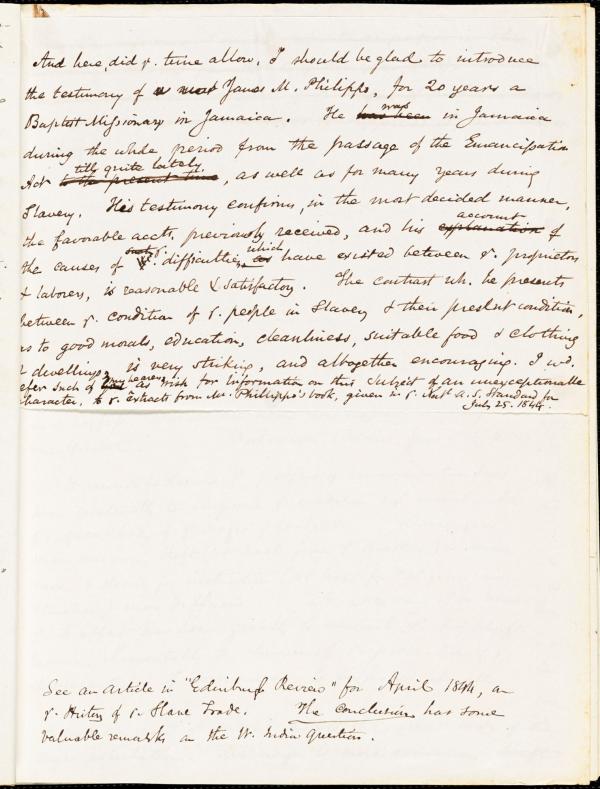 And here, did y. time allow, I should be glad to introduce
the testimony of a most James M. Philippo, for 20 years a
Baptist Missionary in Jamaica. He has been was in Jamaica
during the whole period from the passage of the Emancipation
Act to the present time till quite lately, as well as for many years during
Slavery. His testimony confirms, in the most decided manner,
the favorable accts. previously received, and his explanation account of
the causes of y. difficulties which have existed between y. proprietors
& laborers, is reasonable & satisfactory. The contrast wh. he presents
between y. condition of y. people in Slavery & their present condition,
as to good morals, education, cleanliness, suitable food & clothing
& dwellings, is very striking, and altogether encouraging. I wd.
refer such of my hearers as wish for information on this subject of an unexceptionable
character, to y. Extracts from Mr. Philippo's book, given in y. Natl. A. S. Standard for
July 25. 1844.
See an article in "Edinburgh Review" for April 1844, on
y. History of y. Slave Trade. The conclusion has some
valuable remarks on the W. India question.